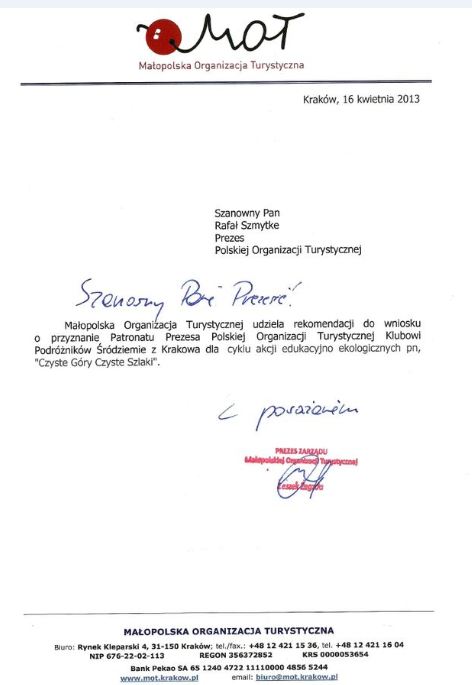 MOT
Małopolska Organizacja Turystyczna
Kraków, 16 kwietnia 2013
Szanowny Pan
Rafał Szmytke
Prezes
Polskiej Organizacji Turystycznej
Szanowny Panie Prezesie!
Małopolska Organizacja Turystycznej udziela rekomendacji do wniosku
o przyznanie Patronatu Prezesa Polskiej Organizacji Turystycznej Klubowi
Podróżników Śródziemie z Krakowa dla cyklu akcji edukacyjno ekologicznych pn,
"Czyste Góry Czyste Szlaki".
Z poważaniem
PREZES ZARZĄDU
Małopolskiej Organizacji Turystycznej
Leszek Zegzda
MAŁOPOLSKA ORGANIZACJA TURYSTYCZNA
Biuro: Rynek Kleparski 4, 31-150 Kraków; tel./fax.: +48 12 421 15 36, tel. +48 12 421 16 04
NIP 676-22-02-113 REGON 356372852 KRS 0000053654
Bank Pekao SA 65 1240 4722 11110000 4856 5244
www.mot.krakow.pl email: biuro@mot.krakow.pl